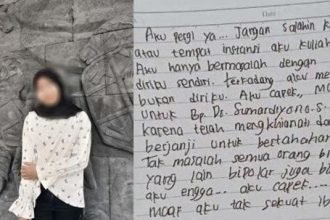 Date :
Aku pergi ya... Jangan salahin k
atau tempat instansi aku kuliah
Aku hanya bermasalah dengan
diriku sendiri, terkadang aku me
bukan diriku. Aku capek, M
untuk Bp. Ps. Sumardiyono. S
karena telah mengkhianati da
berjanji untuk bertahan
Tak masalah semua orang b
yang lain bipolar juga b
aku engga... aku capek...
maaf aku tak sekuat i